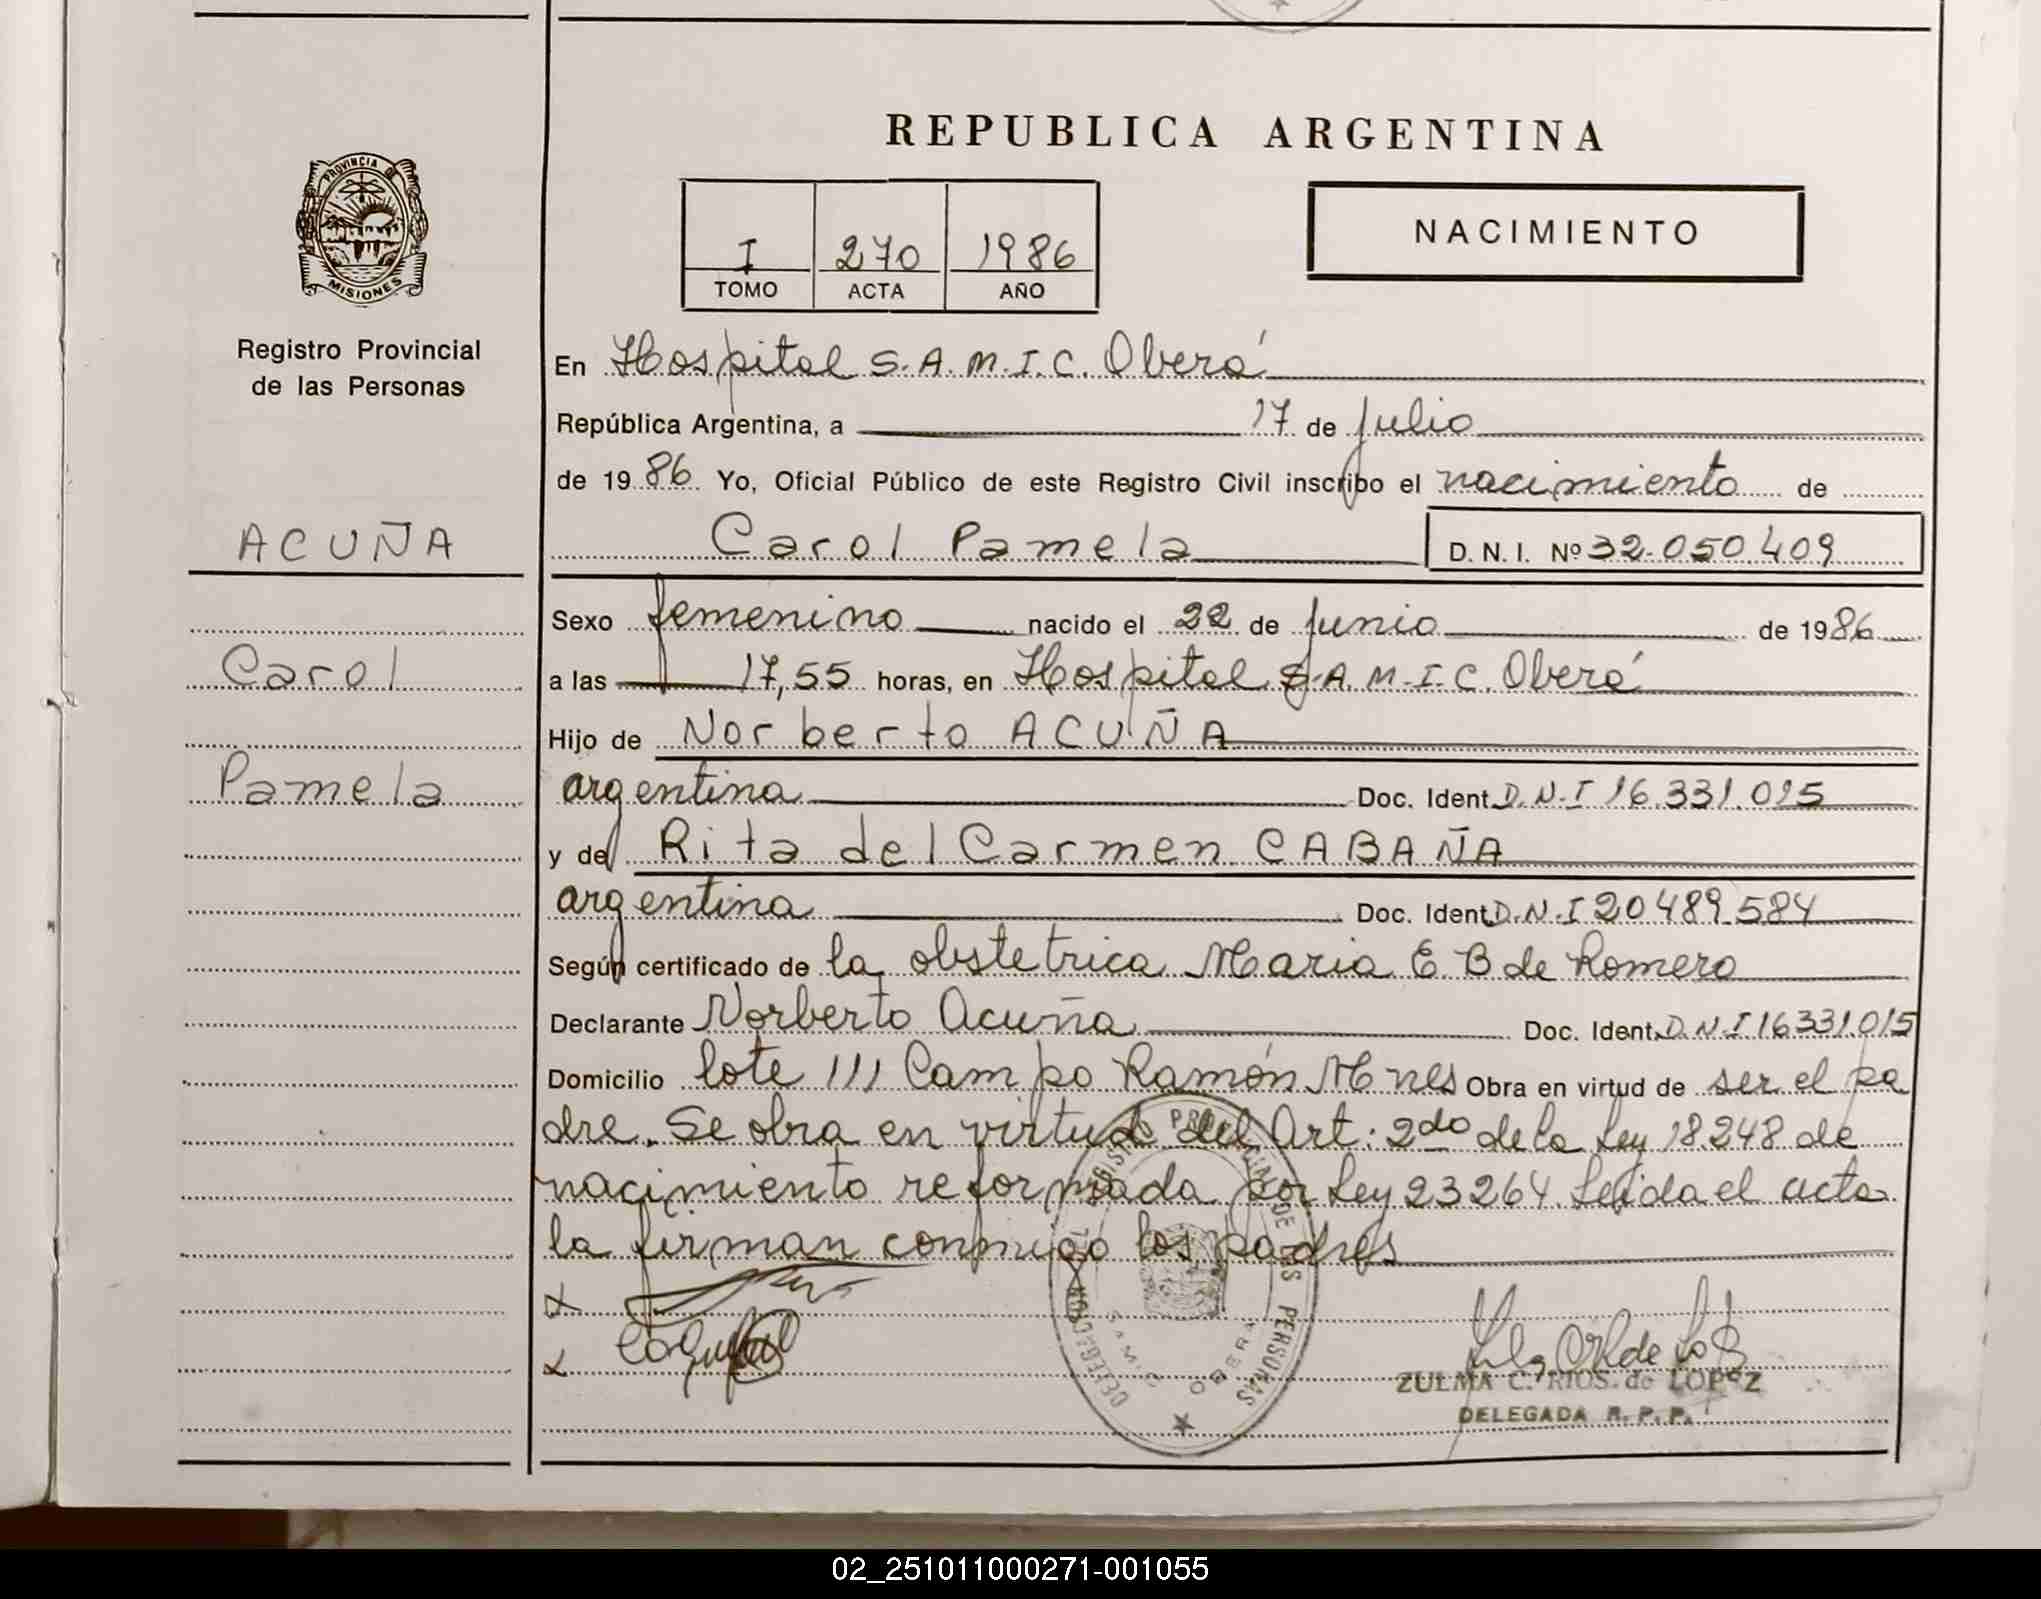 REPUBLICA ARGENTINA
PROVINCIA DE
MISIONES
Registro Provincial
de las Personas
ACUÑA
Carol
Pamela
I 270 1986
TOMO ACTA AÑO
NACIMIENTO
En Hospital S.A.M.I.C. Oberá
República Argentina, a 17 de julio
de 1986 Yo, Oficial Público de este Registro Civil inscribo el nacimiento de
Carol Pamela D.N.I. Nº 32.050.409
Sexo femenino nacido el 22 de junio de 1986
a las 17,55 horas, en Hospital S.A.M.I.C. Oberá
Hijo de Norberto ACUÑA
argentina Doc. Ident. D.N.I 16.331.015
y de Rita del Carmen CABAÑA
argentina Doc. Ident. D.N.I 20.489.584
Según certificado de la obstetrica Maria E B de Romero
Declarante Norberto Acuña Doc. Ident. D.N.I 16.331.015
Domicilio lote 111 Campo Ramón Mnes Obra en virtud de ser el pa
dre. Se obra en virtud del Art: 2do de la Ley 18.248 de
nacimiento reformada por Ley 23264. Leida el acta
la firman conmigo los padres
REGISTRO PROVINCIAL DE LAS PERSONAS
DELEGACION
SAMIC OBERA
ZULMA C. RIOS de LOPEZ
DELEGADA R. P. P.
02_251011000271-001055